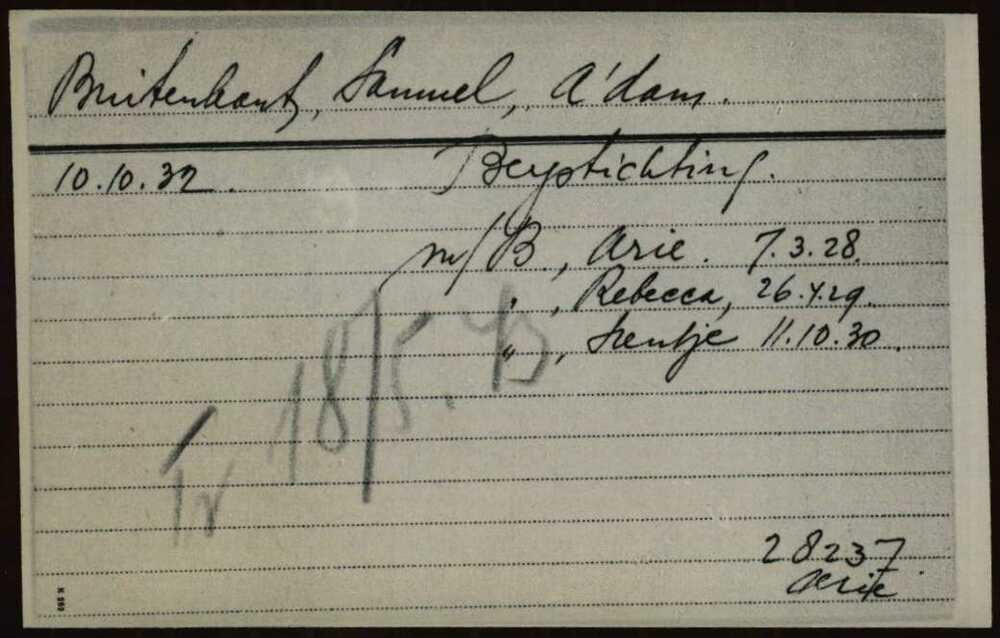 Buitenkant, Samuel, A'dam.
10.10.32. Bergstichting.
m/ B., Arie. 7.3.28.
" , Rebecca, 26.4.29.
" , Sientje 11.10.30.
18/5. B
Tr
28237
Arie